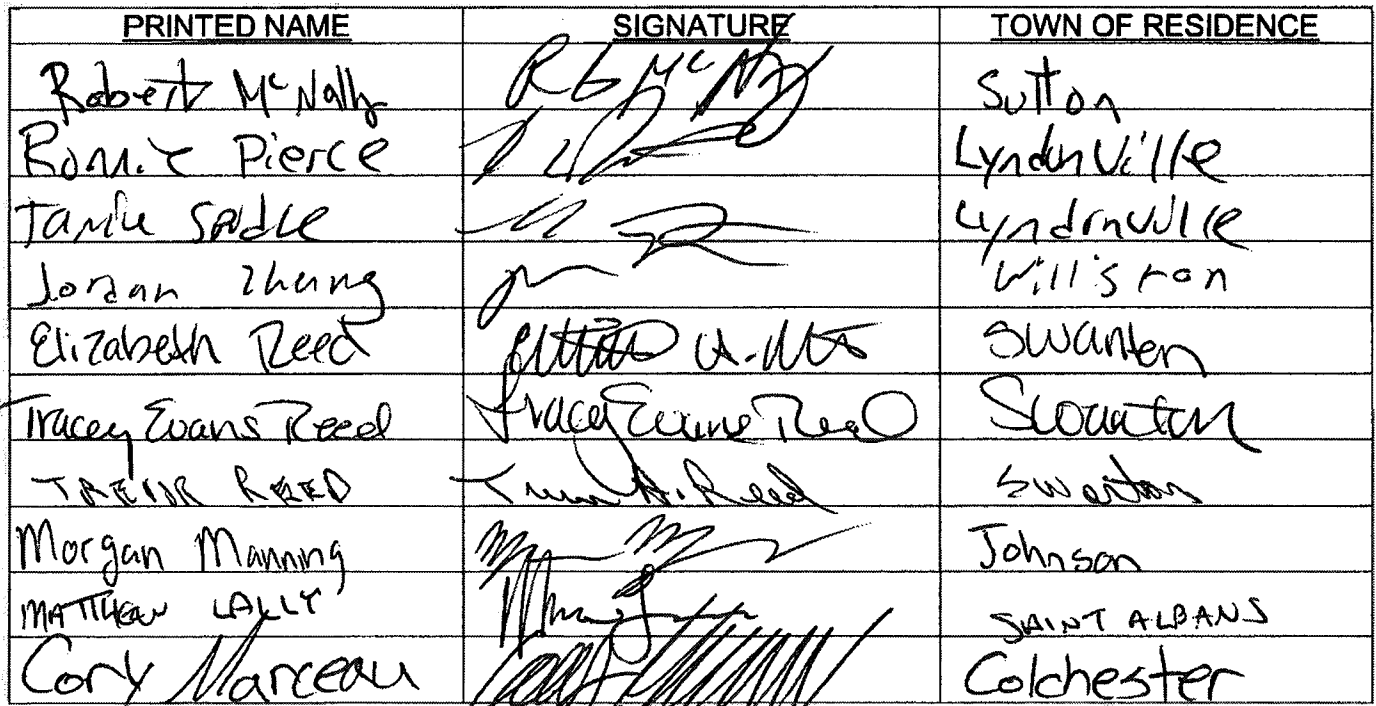 PRINTED NAME SIGNATURE TOWN OF RESIDENCE
Robert McNally Rb McNy Sutton
Ronnie Pierce Lyndonville
Lyndonville
Jordan Zhang Williston
Elizabeth Reed Swanton
Tracey Evans Reed Tracey Evans Reed Swanton
TREVOR REED Trevor A. Reed Swanton
Morgan Manning Johnson
MATTHEW LALLY SAINT ALBANS
Cory Marceau Colchester